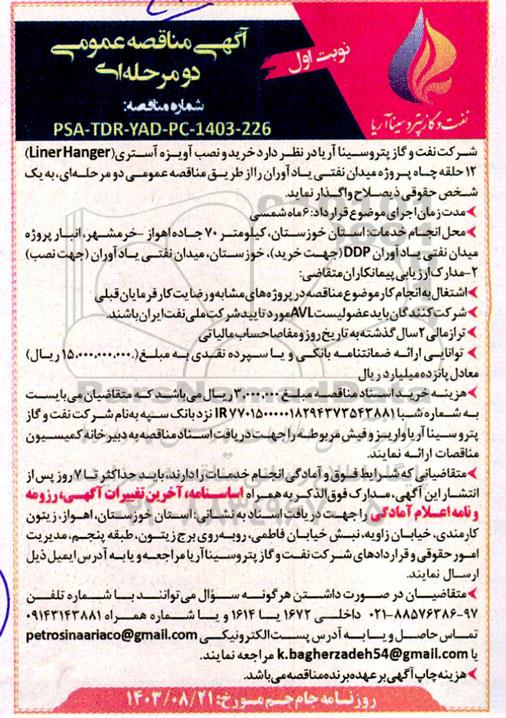 آگهی مناقصه عمومی
دو مرحله‌ای
نوبت اول
شماره مناقصه:
PSA-TDR-YAD-PC-1403-226
نفت و گاز پتروسینا آریا
شرکت نفت و گاز پتروسینا آریا در نظر دارد خرید و نصب آویزه آستری (Liner Hanger)
۱۲ حلقه چاه پروژه میدان نفتی یادآوران را از طریق مناقصه عمومی دو مرحله‌ای، به یک
شخص حقوقی ذیصلاح واگذار نماید.
مدت زمان اجرای موضوع قرارداد: ۶ ماه شمسی
محل انجام خدمات: استان خوزستان، کیلومتر ۷۰ جاده اهواز -خرمشهر، انبار پروژه
میدان نفتی یادآوران DDP (جهت خرید)، خوزستان، میدان نفتی یادآوران (جهت نصب)
۲-مدارک ارزیابی پیمانکاران متقاضی:
اشتغال به انجام کار موضوع مناقصه در پروژه های مشابه و رضایت کارفرمایان قبلی
شرکت کنندگان باید عضو لیست AVL مورد تایید شرکت ملی نفت ایران باشند.
ترازمالی ۲ سال گذشته به تاریخ روز و مفاصاحساب مالیاتی
توانایی ارائه ضمانتنامه بانکی و یا سپرده نقدی به مبلغ (۱۵.۰۰۰.۰۰۰.۰۰۰ ریال)
معادل پانزده میلیارد ریال
هزینه خرید اسناد مناقصه مبلغ ۳،۰۰۰،۰۰۰ ریال می باشد که متقاضیان می بایست
به شماره شبا IR ۷۷۰۱۵۰۰۰۰۰۱۸۲۹۴۳۷۳۵۴۳۸۸۱ نزد بانک سپه به نام شرکت نفت و گاز
پتروسینا آریا واریز و فیش مربوطه را جهت دریافت اسناد مناقصه به دبیرخانه کمیسیون
مناقصات ارائه نمایند.
متقاضیانی که شرایط فوق و آمادگی انجام خدمات را دارند، باید حداکثر تا ۷ روز پس از
انتشار این آگهی، مدارک فوق الذکر به همراه اساسنامه، آخرین تغییرات آگهی، رزومه
و نامه اعلام آمادگی را جهت دریافت اسناد به نشانی: استان خوزستان، اهواز، زیتون
کارمندی، خیابان زاویه، نبش خیابان فاطمی، روبه روی برج زیتون، طبقه پنجم، مدیریت
امور حقوقی و قراردادهای شرکت نفت و گاز پتروسینا آریا مراجعه و یا به آدرس ایمیل ذیل
ارسال نمایند.
متقاضیان در صورت داشتن هرگونه سؤال می توانند با شماره تلفن
۰۲۱-۸۸۵۷۶۳۸۶-۹۷ داخلی ۱۶۷۲ یا ۱۶۱۴ و یا شماره همراه ۰۹۱۴۳۱۴۳۸۸۱
تماس حاصل و یا به آدرس پست الکترونیکی petrosinaariaco@gmail.com
یا k.bagherzadeh54@gmail.com مراجعه نمایند.
هزینه چاپ آگهی بر عهده برنده مناقصه می باشد.
روزنامه جام جم مورخ: ۱۴۰۳/۰۸/۲۱